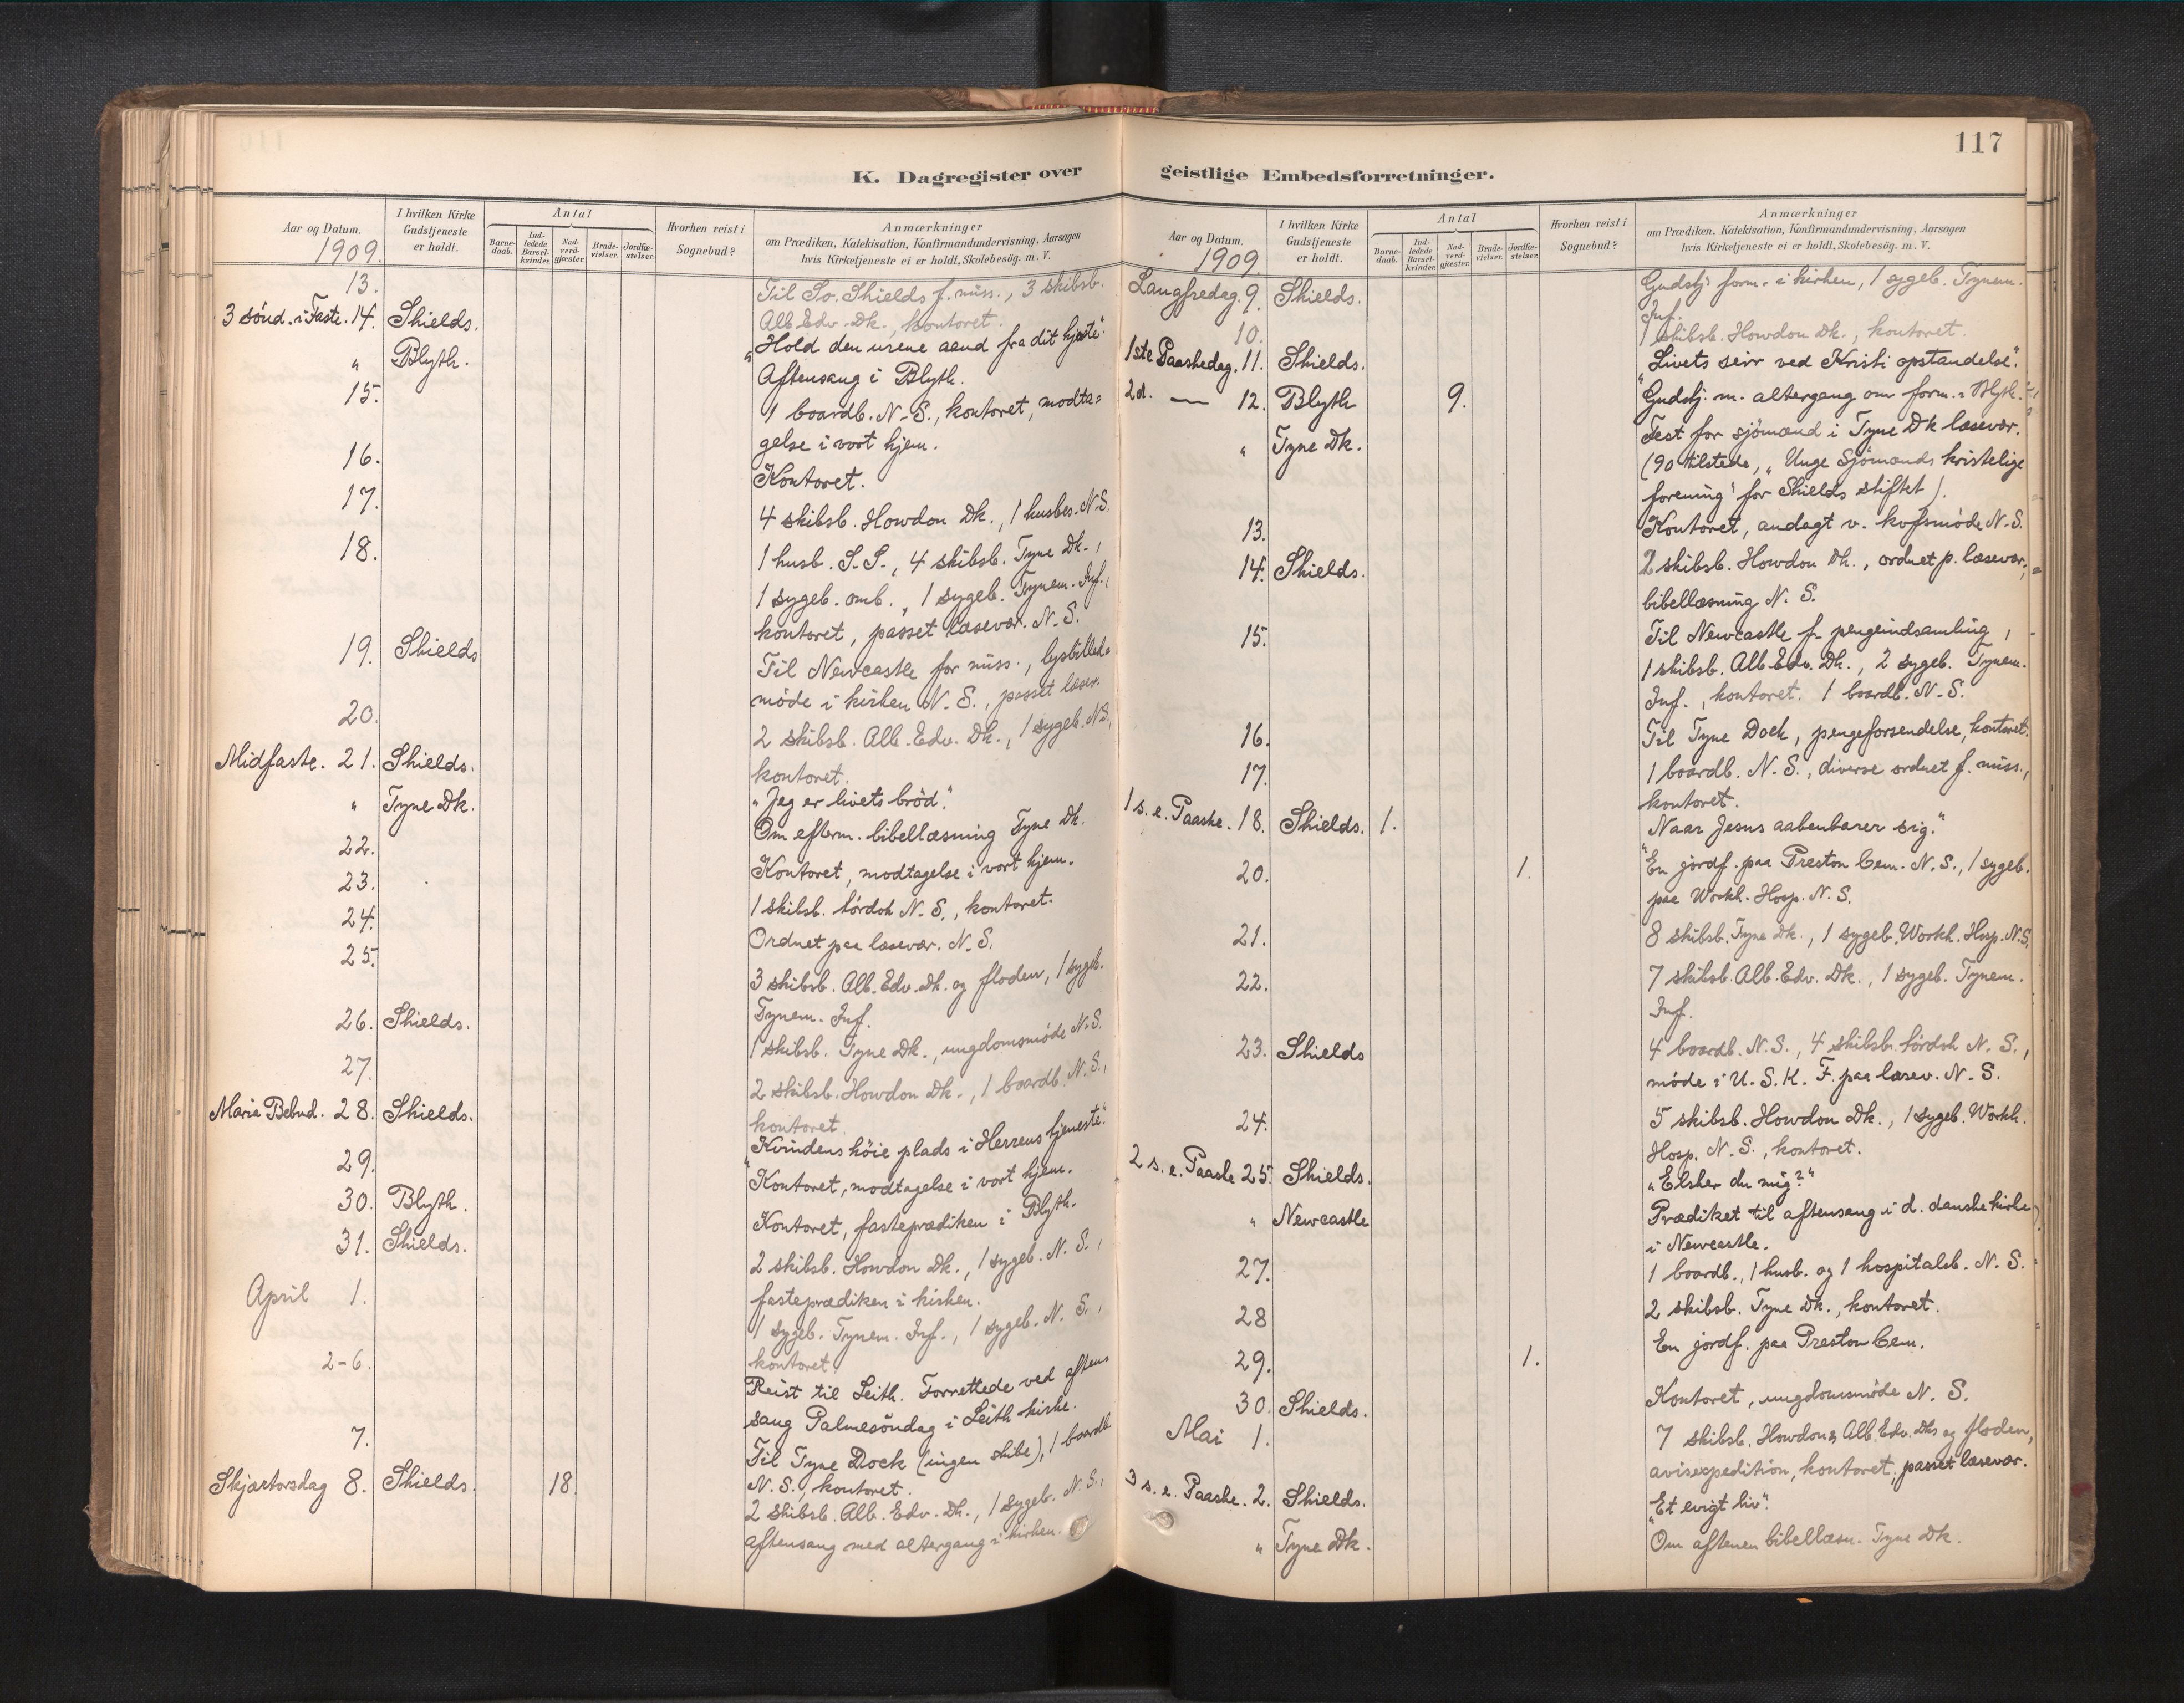 117
K. Dagregister over geistlige Embedsforretninger.
Aar og Datum. 1909.
I hvilken Kirke Gudstjeneste er holdt.
Antal
Barne-daab.
Ind-ledede Barsel-kvinder.
Nad-verd-gjæster.
Brude-vielser.
Jordfæ-stelser.
Hvorhen reist i Sognebud?
Anmærkninger
om Prædiken, Katekisation, Konfirmandundervisning, Aarsagen
hvis Kirketjeneste ei er holdt, Skolebesög. m. V.
13. Til So. Shields f. miss., 3 skibsb.
Alb. Edv. Dk., kontoret.
3 sönd. i Faste. 14. Shields. „Hold den urene aand fra dit hjerte".
„ Blyth. Aftensang i Blyth.
15. 1 boardb. N.S., kontoret, modta=
gelse i vort hjem.
16. Kontoret.
17. 4 skibsb. Howdon Dk., 1 husbes. N.S.
18. 1 husb. S.S., 4 skibsb. Tyne Dk.,
1 sygeb. omb., 1 sygeb. Tynem. Inf.,
kontoret, passet læsevær. N.S.
19. Shields Til Newcastle for miss., lysbilled=
möde i kirken N.S., passet læsev.
20. 2 skibsb. Alb. Edv. Dk., 1 sygeb. N.S.,
kontoret.
Midfaste. 21. Shields. „Jeg er livets bröd."
„ Tyne Dk. Om efterm. bibellæsning Tyne Dk.
22. Kontoret, modtagelse i vort hjem.
23. 1 skibsb. tördok N.S., kontoret.
24. Ordnet paa læsevær. N.S.
25. 3 skibsb. Alb. Edv. Dk. og floden, 1 sygeb.
Tynem. Inf.
26. Shields. 1 skibsb. Tyne Dk., ungdomsmöde N.S.
27. 2 skibsb. Howdon Dk., 1 boardb. N.S.,
kontoret.
Maria Bebud. 28. Shields. „Kvindens höie plads i Herrens tjeneste."
29. Kontoret, modtagelse i vort hjem.
30. Blyth. Kontoret, fasteprædiken i Blyth.
31. Shields. 2 skibsb. Howdon Dk., 1 sygeb. N.S.,
fasteprædiken i kirken.
April 1. 1 sygeb. Tynem. Inf., 1 sygeb. N.S.,
kontoret.
2-6. Reist til Leith. Forrettede ved aften=
sang Palmesöndag i Leith kirke.
7. Til Tyne Dock (ingen skibe), 1 boardb
N.S., kontoret.
Skjærtorsdag 8. Shields. 18. 2 skibsb. Alb. Edv. Dk., 1 sygeb. N.S.,
aftensang med altergang i kirken.
Aar og Datum. 1909.
I hvilken Kirke Gudstjeneste er holdt.
Antal
Barne-daab.
Ind-ledede Barsel-kvinder.
Nad-verd-gjæster.
Brude-vielser.
Jordfæ-stelser.
Hvorhen reist i Sognebud?
Anmærkninger
om Prædiken, Katekisation, Konfirmandundervisning, Aarsagen
hvis Kirketjeneste ei er holdt, Skolebesög. m. V.
Langfredag. 9. Shields. Gudstj. form. i kirken, 1 sygeb. Tynem.
Inf.
10. 1 skibsb. Howdon Dk., kontoret.
1ste Paaskedag. 11. Shields. „Livets seir ved Kristi opstandelse".
2d. — 12. Blyth 9. Gudstj. m. altergang om form. i Blyth.
„ Tyne Dk. Fest for sjömænd i Tyne Dk læsevær.
(90 tilstede, „Unge Sjömænds kristelige
forening" for Shields stiftet).
13. Kontoret, andagt v. kvfsmöde N.S.
14. Shields. 2 skibsb. Howdon Dk., ordnet p. læsevær.,
bibellæsning N.S.
15. Til Newcastle f. pengeindsamling,
1 skibsb. Alb. Edv. Dk., 2 sygeb. Tynem.
Inf., kontoret. 1 boardb. N.S.
16. Til Tyne Dock, pengeforsendelse, kontoret.
17. 1 boardb. N.S., diverse ordnet f. miss.,
kontoret.
1 s. e. Paaske. 18. Shields. 1. „Naar Jesus aabenbarer sig."
20. 1. En jordf. paa Preston Cem. N.S., 1 sygeb.
paa Workh. Hosp. N.S.
21. 8 skibsb. Tyne Dk., 1 sygeb. Workh. Hosp. N.S.
22. 7 skibsb. Alb. Edv. Dk., 1 sygeb. Tynem.
Inf.
23. Shields 4 boardb. N.S., 4 skibsb. tördok N.S.,
möde i U.S.K.F. paa læsev. N.S.
24. 5 skibsb. Howdon Dk., 1 sygeb. Workh.
Hosp. N.S., kontoret.
2 s. e. Paaske 25. Shields. „Elsker du mig?"
„ Newcastle Prædiket til aftensang i d. danske kirke
i Newcastle.
27. 1 boardb., 1 husb. og 1 hospitalsb. N.S.
28 2 skibsb. Tyne Dk., kontoret.
29. 1. En jordf. paa Preston Cem.
30. Shields. Kontoret, ungdomsmöde N.S.
Mai 1. 7 skibsb. Howdon & Alb. Edv. Dks og floden,
avisexpedition, kontoret. passet læsevær.
3 s. e. Paaske. 2. Shields. „Et evigt liv".
„ Tyne Dk. Om aftenen bibellæsn. Tyne Dk.